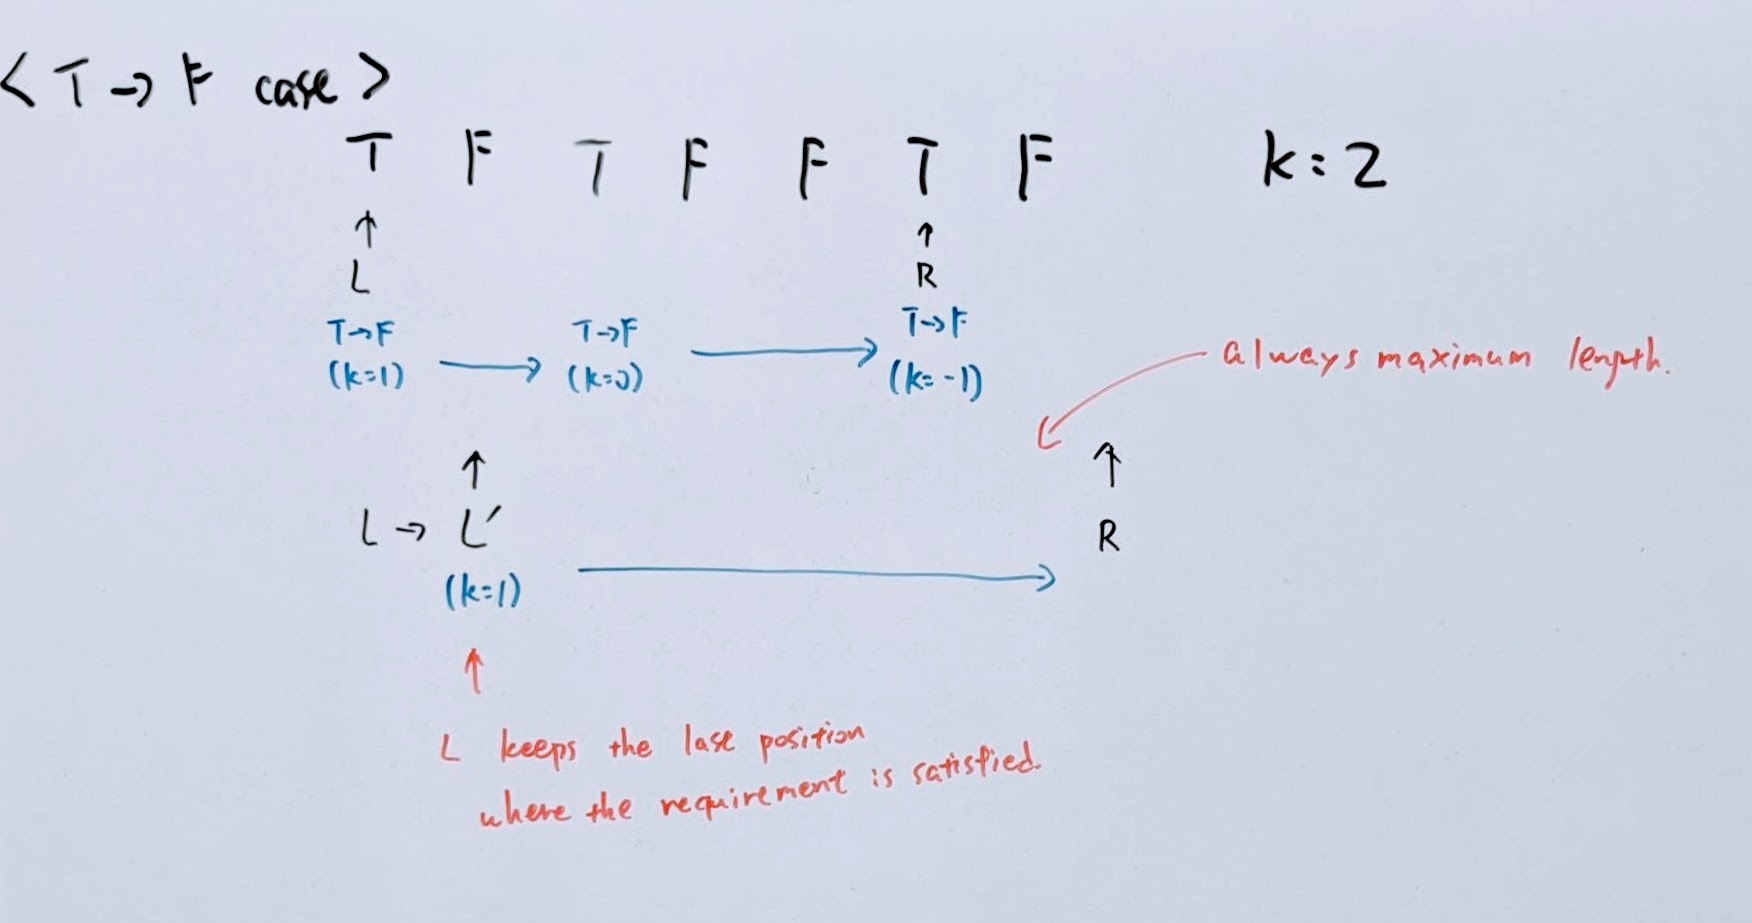 <T→F case>
T F T F F T F k:2
↑ ↑
L R
T→F T→F T→F
(k=1) → (k=0) → (k=-1)
always maximum length.
↑ ↑
L → L' R
(k=1) →
↑
L keeps the last position
where the requirement is satisfied.